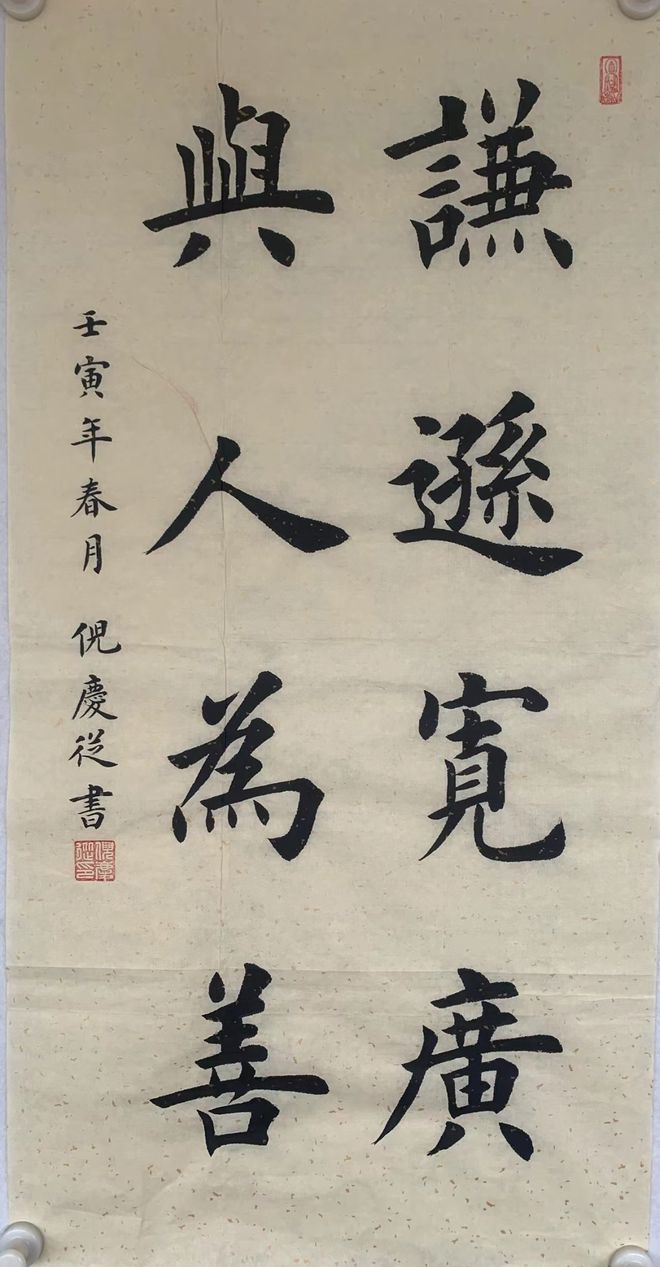 謙遜寬廣
與人為善
壬寅年春月 倪慶從書
倪慶從印